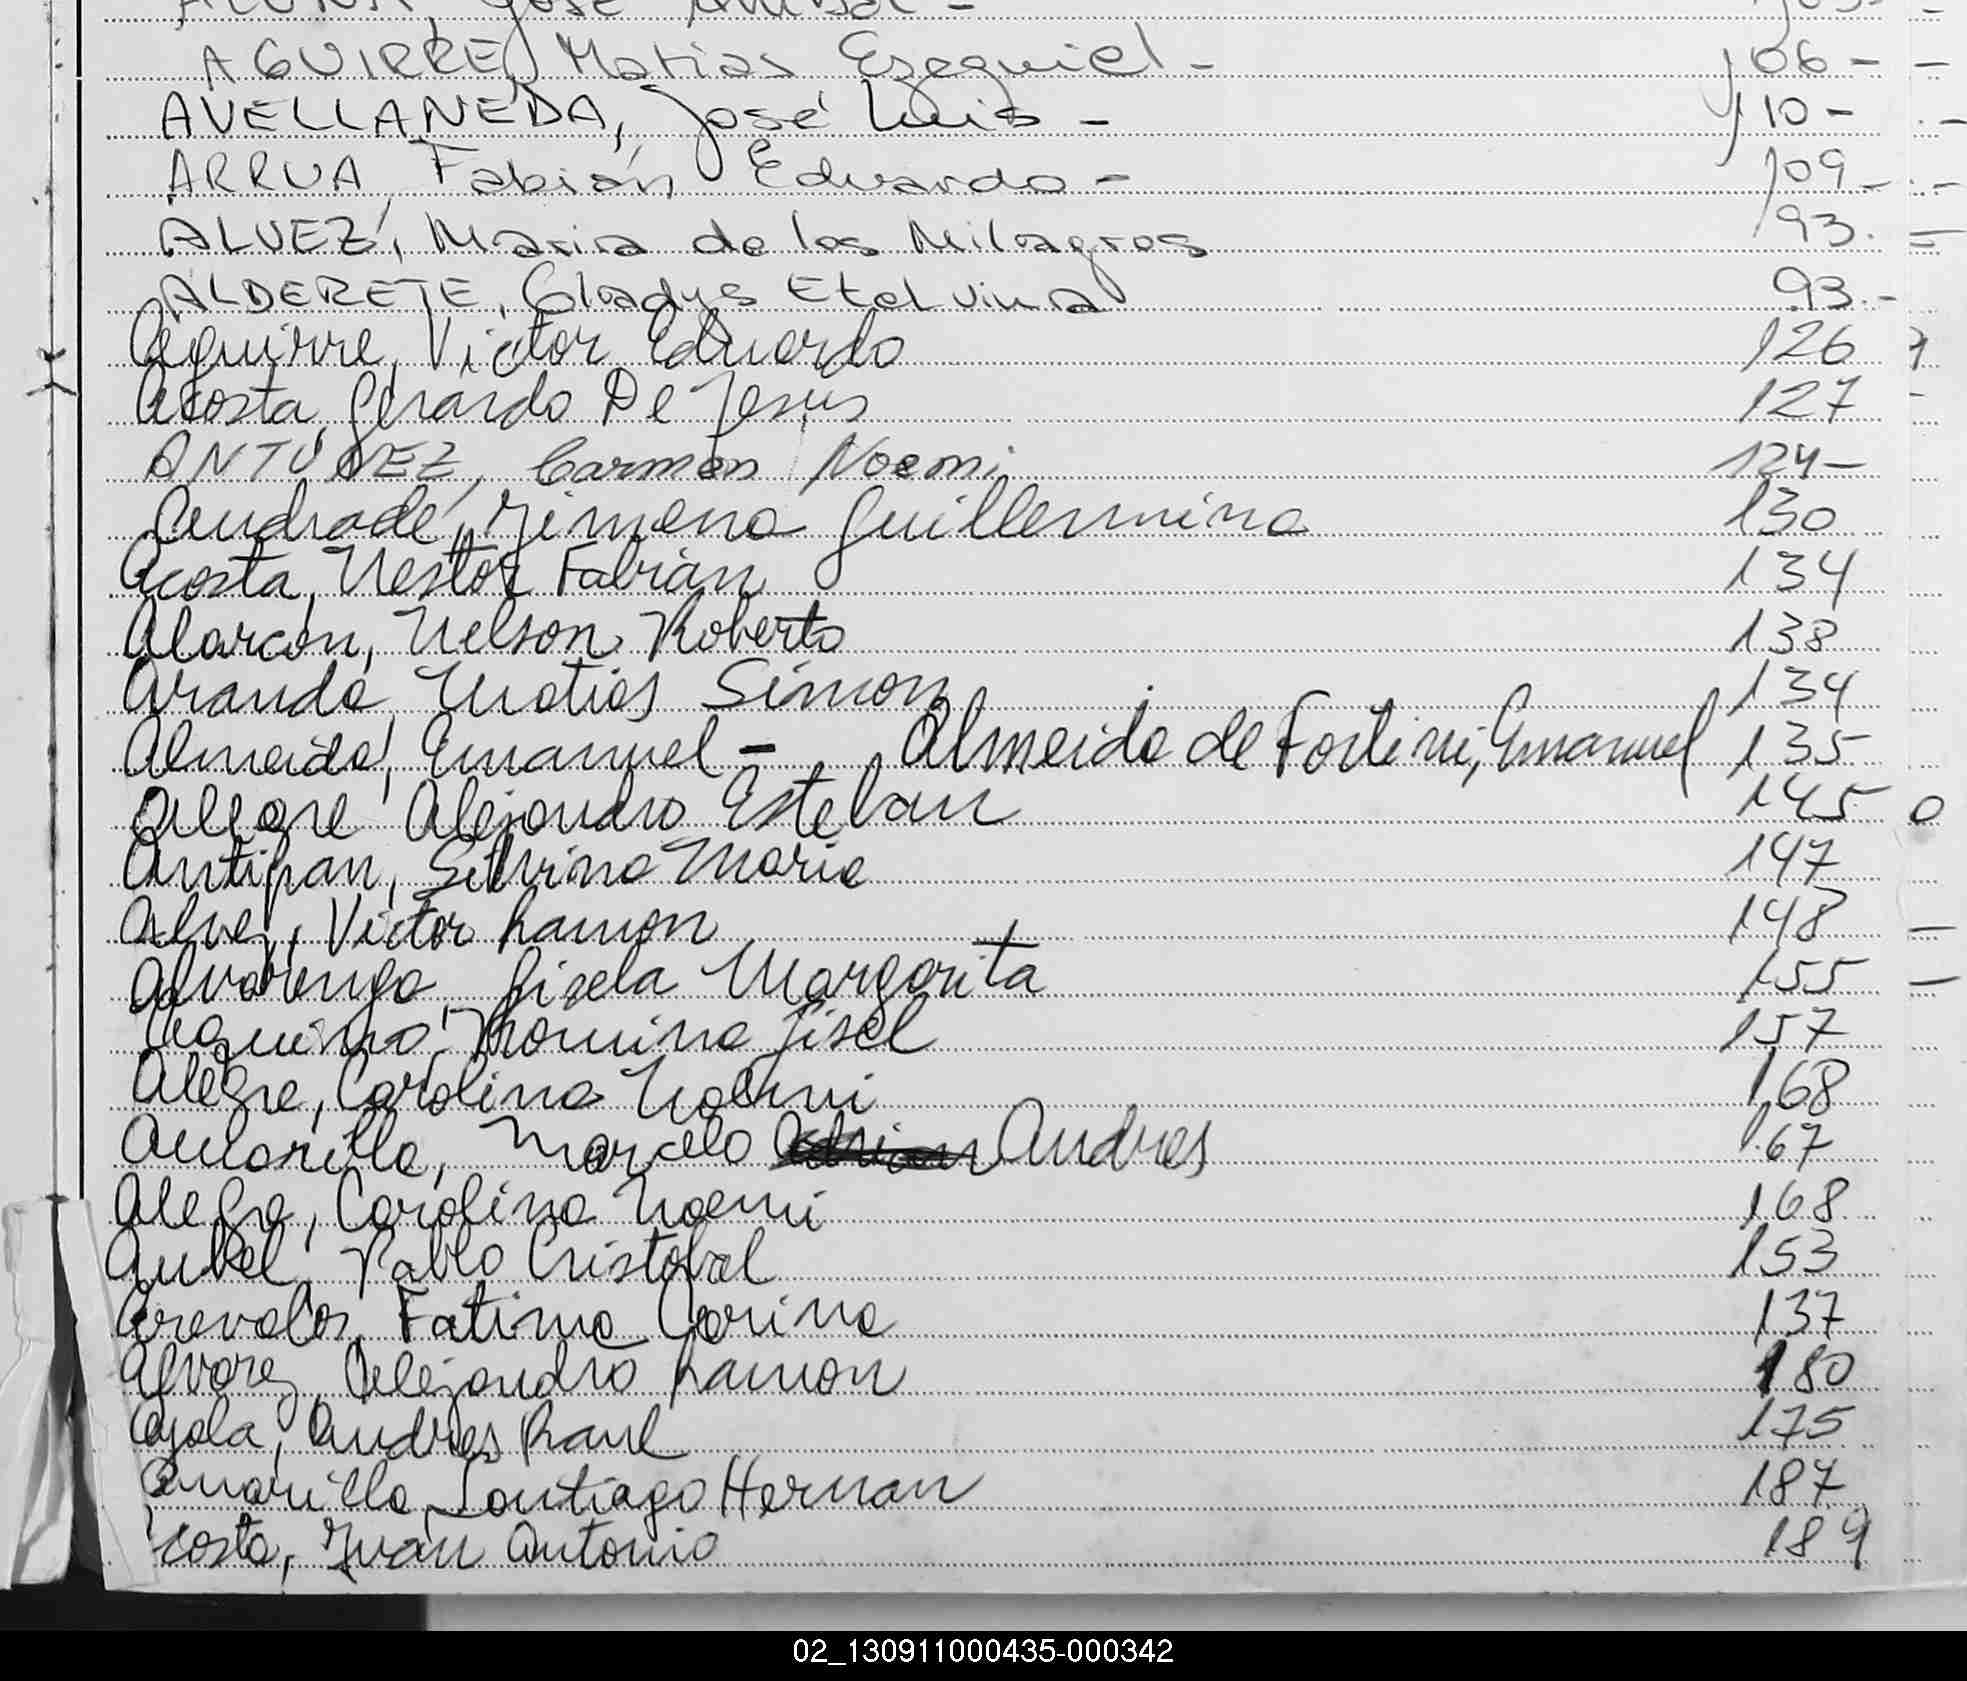 ACUÑA, José Anibal - 105-
AGUIRRE, Matias Ezequiel - 106 -
AVELLANEDA, José Luis - 110 -
ARRUA, Fabián Eduardo - 109 -
ALVEZ, Maria de los Milagros 93.
ALDERETE, Gladys Etelvina 93.-
Aguirre, Victor Eduardo 126
Acosta, Gerardo De Jesus 127
ANTÚNEZ, Carmen Noemi 124-
Andrade, Jimena Guillermina 130
Acosta, Nestor Fabián 134
Alarcón, Nelson Roberto 138
Aranda, Matias Simon 134
Almeida, Emanuel - Almeida de Fortini, Emanuel 135
Alegre Alejandro Esteban 145
Antipan, Silvina Maria 147
Alvez, Victor Ramon 148
Alvarenga, Gisela Margarita 155
Aquino, Romina Gisel 157
Alegre, Carolina Noemi 168
Amarilla, Marcelo Adrian Andres 167
Alegre, Carolina Noemi 168
Aubel, Pablo Cristobal 153
Arevalos, Fatima Carina 137
Alvarez, Alejandro Ramon 180
Ayala, Andres Raul 175
Amarilla, Santiago Hernan 187
Acosta, Juan Antonio 189
02_130911000435-000342